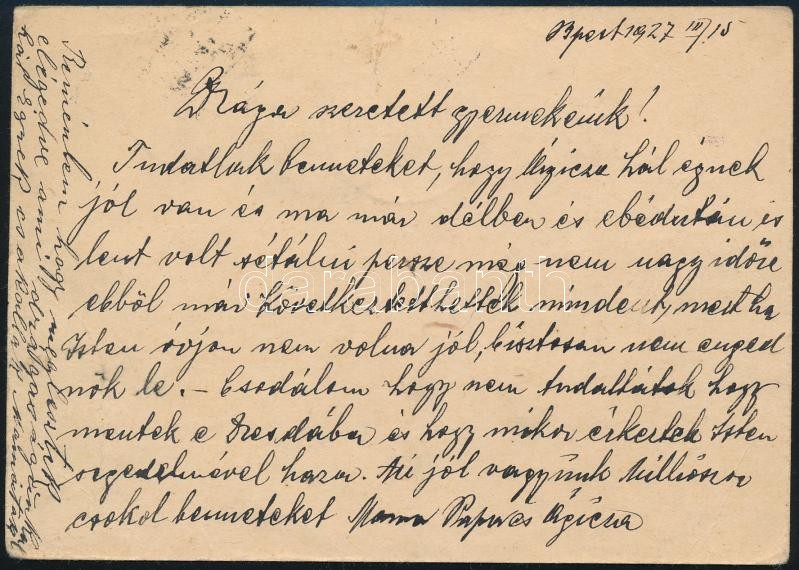 Bpest 1927 III/15
Drága szeretett gyermekeink!
Tudatlak benneteket, hogy Ágicza hál égnek
jól van és ma már délben és ebédután is
lent volt sétálni persze még nem nagy időre
ebből már következtethettek mindent, mert ha
Isten óvjon nem volna jól, bisztosan nem enged
nők le. – Csodálom hogy nem tudattátok hogy
mentek e Dresdába és hogy mikor érkeztek Isten
segedelmével haza. Mi jól vagyunk Milliószor
csokol benneteket Mama Papa és Ágicza
Reménlem hogy
elégedve ami
hál égnek
darabanth